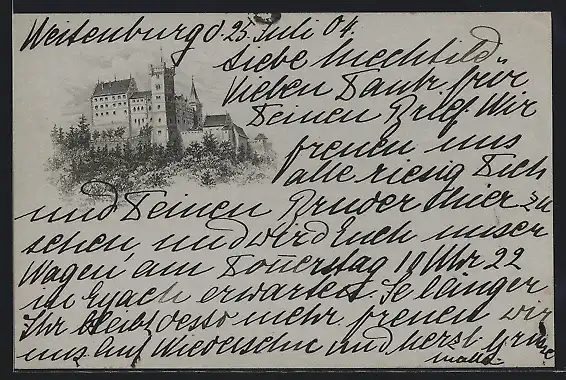 Weitenburg d. 25. Juli 04.
Liebe Mechthild,
Vielen Dank für
Deinen Brief. Wir
freuen uns
alle riesig Dich
und Deinen Bruder hier zu
sehen, und wird Euch unser
Wagen am Donnerstag 10 Uhr 22
in Eyach erwarten. Je länger
Ihr bleibt desto mehr freuen wir
uns. Auf Wiedersehn und herzl. Grüsse